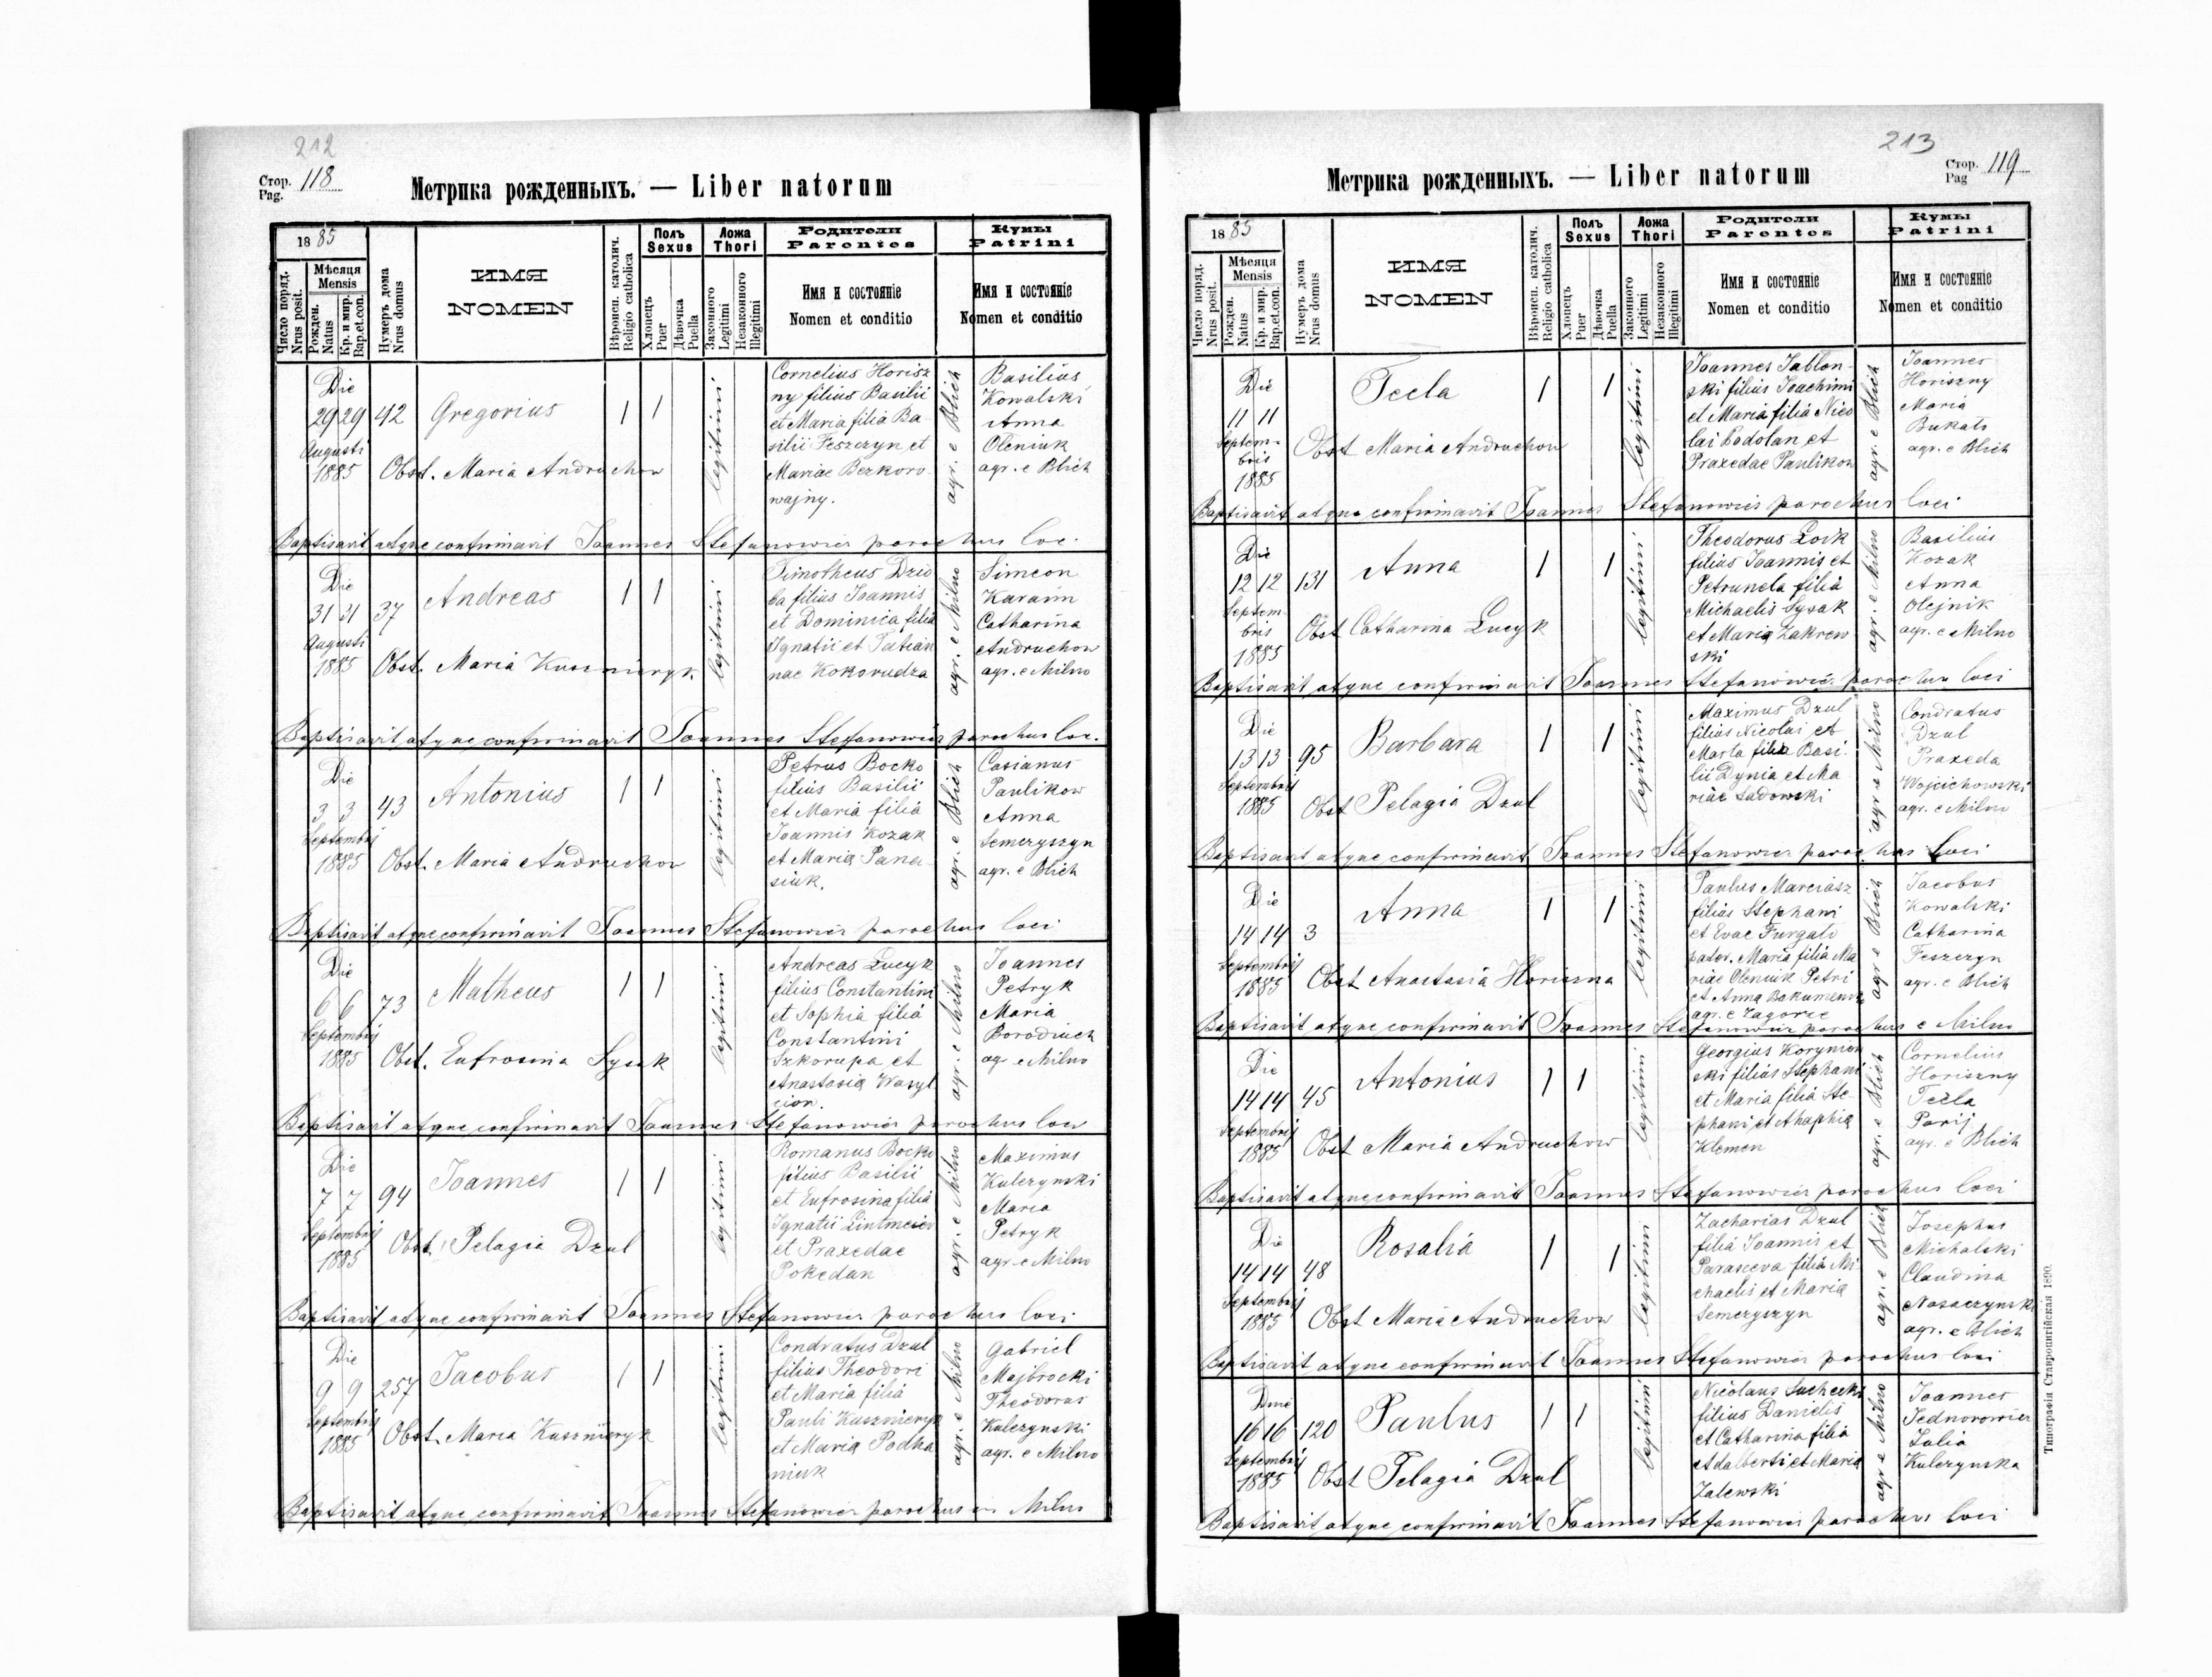 212
Стор. 118
Pag.
Метрика рожденныхъ. — Liber natorum
1885
Число поряд.
Nrus posit.
Мѣсяця
Mensis
Рожден.
Natus
Кр. и мир.
Bap.et.con.
Нумеръ дома
Nrus domus
ИМЯ
NOMEN
Вѣроисп. католич.
Religio catholica
Полъ
Sexus
Хлопецъ
Puer
Дѣвочка
Puella
Ложа
Thori
Законного
Legitimi
Незаконного
Illegitimi
Родители
Parentes
Имя и состояніе
Nomen et conditio
Кумы
Patrini
Имя и состояніе
Nomen et conditio
Die
29 29 42 Gregorius 1 1
Augusti
1885 Obst. Maria Andruchow
legitimi
Cornelius Horisz
ny filius Basilii
et Maria filia Ba
silii Feszczyn et
Mariae Bezkoro
wajny.
agr. e Blich
Basilius
Kowalski
Anna
Oleniuk
agr. e Blich
Baptisavit atque confirmavit Joannes Stefanowicz parochus loc.
Die
31 31 37 Andreas 1 1
Augusti
1885 Obst. Maria Kusznieryk
legitimi
Timotheus Dzio
ba filius Joannis
et Dominica filia
Ignatii et Tatian
nae Kokorudza
agr. e Milno
Simeon
Karaim
Catharina
Andruchow
agr. e Milno
Baptisavit atque confirmavit Joannes Stefanowicz parochus loc.
Die
3 3 43 Antonius 1 1
Septembrij
1885 Obst. Maria Andruchow
legitimi
Petrus Bocko
filius Basilii
et Maria filia
Joannis Kozak
et Maria Pana
siuk.
agr. e Blich
Casianus
Paulikow
Anna
Semeryszyn
agr. e Blich
Baptisavit atque confirmavit Joannes Stefanowicz parochus loci
Die
6 6 73 Matheus 1 1
Septembrij
1885 Obst. Eufrosina Sysak
legitimi
Andreas Lucyk
filius Constantini
et Sophia filia
Constantini
Szkorupa et
Anastasia Wasyl
cion.
agr. e Milno
Joannes
Petryk
Maria
Borodiuch
ag e Milno
Baptisavit atque confirmavit Joannes Stefanowicz parochus loci
Die
7 7 94 Joannes 1 1
Septembrij
1885 Obst. Pelagia Dzul
legitimi
Romanus Bocko
filius Basilii
et Eufrosina filia
Ignatii
et Praxedae
Pokedan
agr. e Milno
Maximus
Kulczynski
Maria
Petryk
agr. e Milno
Baptisavit atque confirmavit Joannes Stefanowicz parochus loci
Die
9 9 257 Jacobus 1 1
Septembrij
1885 Obst. Maria Kusznieryk
legitimi
Condratus Dzul
filius Theodori
et Maria filia
Pauli Kusznieryk
et Maria Podha
niuk
agr. e Milno
Gabriel
Majbrocki
Theodorus
Kulczynski
agr. e Milno
Baptisavit atque confirmavit Joannes Stefanowicz parochus in Milno
213
Стор. 119
Pag
Метрика рожденныхъ. — Liber natorum
1885
Число поряд.
Nrus posit.
Мѣсяця
Mensis
Рожден.
Natus
Кр. и мир.
Bap.et.con.
Нумеръ дома
Nrus domus
ИМЯ
NOMEN
Вѣроисп. католич.
Religio catholica
Полъ
Sexus
Хлопецъ
Puer
Дѣвочка
Puella
Ложа
Thori
Законного
Legitimi
Незаконного
Illegitimi
Родители
Parentes
Имя и состояніе
Nomen et conditio
Кумы
Patrini
Имя и состояніе
Nomen et conditio
Die
11 11 Tecla 1 1
Septem-
bris
1885
Obst Maria Andruchow
legitimi
Joannes Jablon-
ski filius Joachimi
et Maria filia Nico
lai Podolan et
Praxedae Paulikow
agr. e Blich
Joannes
Horiszny
Maria
Bukalo
agr. e Blich
Baptisavit atque confirmavit Joannes Stefanowicz parochus loci
Die
12 12 131 Anna 1 1
Septem-
bris
1885
Obst Catharina Lucyk
legitimi
Theodorus Loik
filius Joannis et
Petrunela filia
Michaelis Sysak
et Maria Zakrew
ski
agr. e Milno
Basilius
Kozak
Anna
Olejnik
agr. e Milno
Baptisavit atque confirmavit Joannes Stefanowicz parochus loci
Die
13 13 95 Barbara 1 1
Septembrij
1885 Obst Pelagia Dzul
legitimi
Maximus Dzul
filius Nicolai et
Marta filia Basi
lii Dynia et Ma
riae Sadowski
agr e Milno
Condratus
Dzul
Praxeda
Wojcichowski
agr. e Milno
Baptisavit atque confirmavit Joannes Stefanowicz parochus loci
Die
14 14 3 Anna 1 1
Septembrij
1885 Obst Anastasia Horiszna
legitimi
Paulus Marciasz
filius Stephani
et Evae Furgalo
pater. Maria filia Ma
riae Oleniuk Petri
et Anna
agr. e Zagorze
agr e Blich
Jacobus
Kowalski
Catharina
Feszczyn
agr. e Blich
Baptisavit atque confirmavit Joannes Stefanowicz parochus e Milno
Die
14 14 45 Antonius 1 1
Septembrij
1885 Obst Maria Andruchow
legitimi
Georgius Korymon
ski filius Stephani
et Maria filia Ste-
phani et Ahaphia
Klemen
agr. e Blich
Cornelius
Horiszny
Tecla
Parij
agr. e Blich
Baptisavit atque confirmavit Joannes Stefanowicz parochus loci
Die
14 14 48 Rosalia 1 1
Septembrij
1885 Obst Maria Andruchow
legitimi
Zacharias Dzul
filia Joannis et
Parasceva filia Mi
chaelis et Maria
Semeryszyn
agr. e Blich
Josephus
Michalski
Claudina
Nasaczynski
agr. e Blich
Baptisavit atque confirmavit Joannes Stefanowicz parochus loci
Die
16 16 120 Paulus 1 1
Septembrij
1885 Obst Pelagia Dzul
legitimi
Nicolaus Suchecki
filius Danielis
et Catharina filia
Adalberti et Maria
Zalewski
agr e Milno
Joannes
Jednorowicz
Julia
Kulczynska
Baptisavit atque confirmavit Joannes Stefanowicz parochus loci
Типографія Ставропигійская 1890.